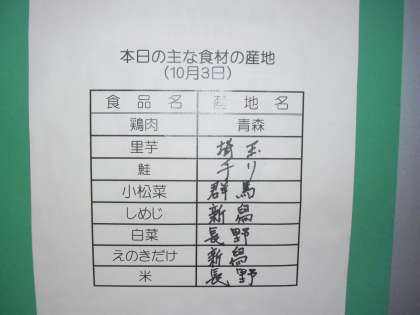 本日の主な食材の産地
(10月3日)
食品名 産地名
鶏肉 青森
里芋 埼玉
鮭 チリ
小松菜 群馬
しめじ 新潟
白菜 長野
えのきだけ 新潟
米 長野